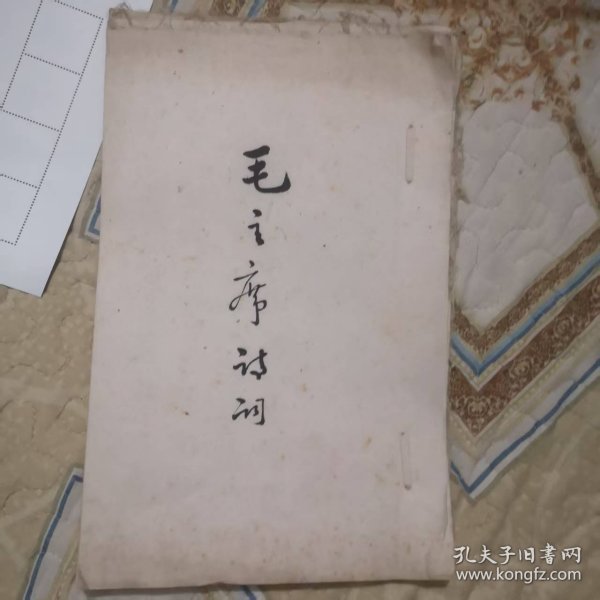 毛主席诗词
孔夫子旧书网
www.kongfz.com